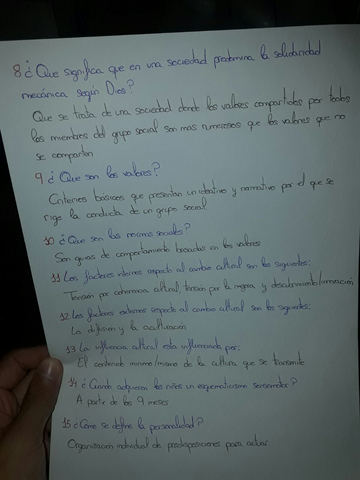 8 ¿Que significa que en una sociedad predomina la solidaridad
mecánica según Dios?
Que se trata de una sociedad donde los valores compartidos por todos
los miembros del grupo social son mas numerosos que los valores que no
se comparten
9 ¿Que son los valores?
Criterios básicos que presentan un ideativo y normativo por el que se
rige la conducta de un grupo social
10 ¿Que son las normas sociales?
Son guias de comportamiento basadas en los valores
11 Los factores internos respecto al cambio cultural son los siguientes:
Tensión por coherencia cultural, tensión por la mejora y descubrimiento/innovación
12 Los factores externos respecto al cambio cultural son los siguientes:
La difusión y la aculturación
13 La influencia cultural esta influenciada por:
El contenido mismo/mismo de la cultura que se transmite
14 ¿Cuando adquieren los niños un esquematismo sensomotor?
A parte de los 9 meses
15 ¿Cómo se define la personalidad?
Organización individual de predisposiciones para actuar